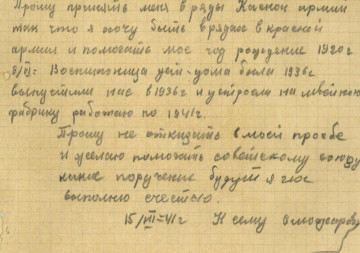 Прошу принять меня в ряды Красной армии
так что я хочу быть в рядах в красной
армии и помогать мое год рождение 1920 г
Воспитоница дет-дома была 1936 г
выпустили нас в 1936 г и устроели на швейную
фабрику работаю по 1941 г.
Прошу не отказать в моей прозбе
и желаю помогать советскому союзу
поручение будут я
выполню счестью.
15/VII-41 г К сему